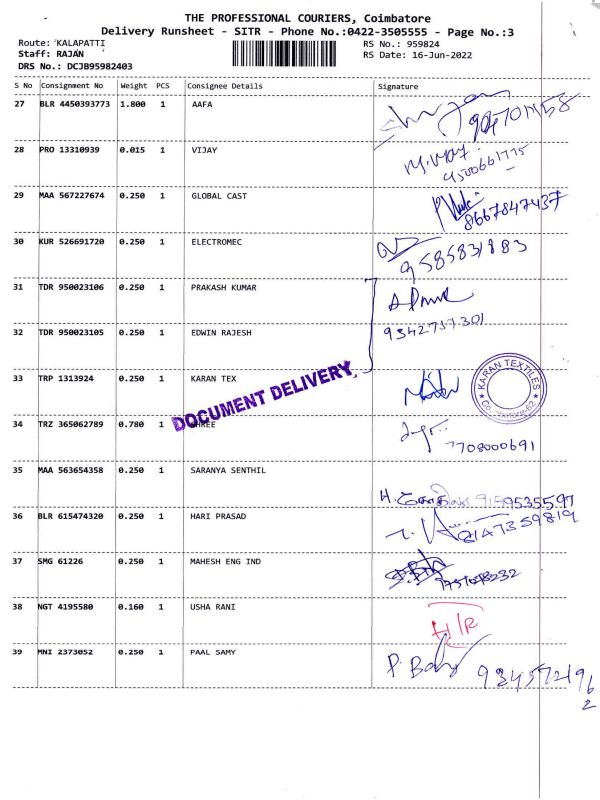 THE PROFESSIONAL COURIERS, Coimbatore
Delivery Runsheet - SITR - Phone No.:0422-3505555 - Page No.:3
Route: KALAPATTI RS No.: 959824
Staff: RAJAN RS Date: 16-Jun-2022
DRS No.: DCJB95982403
S No Consignment No Weight PCS Consignee Details Signature
27 BLR 4450393773 1.800 1 AAFA
28 PRO 13310939 0.015 1 VIJAY
9500661775
29 MAA 567227674 0.250 1 GLOBAL CAST
8667847437
30 KUR 526691720 0.250 1 ELECTROMEC
9585831883
31 TDR 950023106 0.250 1 PRAKASH KUMAR
32 TDR 950023105 0.250 1 EDWIN RAJESH
9342757301
33 TRP 1313924 0.250 1 KARAN TEX
KARAN TEXTILES
DOCUMENT DELIVERY
34 TRZ 365062789 0.780 1
7708000691
35 MAA 563654358 0.250 1 SARANYA SENTHIL
9159535597
36 BLR 615474320 0.250 1 HARI PRASAD
8147359819
37 SMG 61226 0.250 1 MAHESH ENG IND
38 NGT 4195580 0.160 1 USHA RANI
H/R
39 MNI 2373052 0.250 1 PAAL SAMY
9345721962